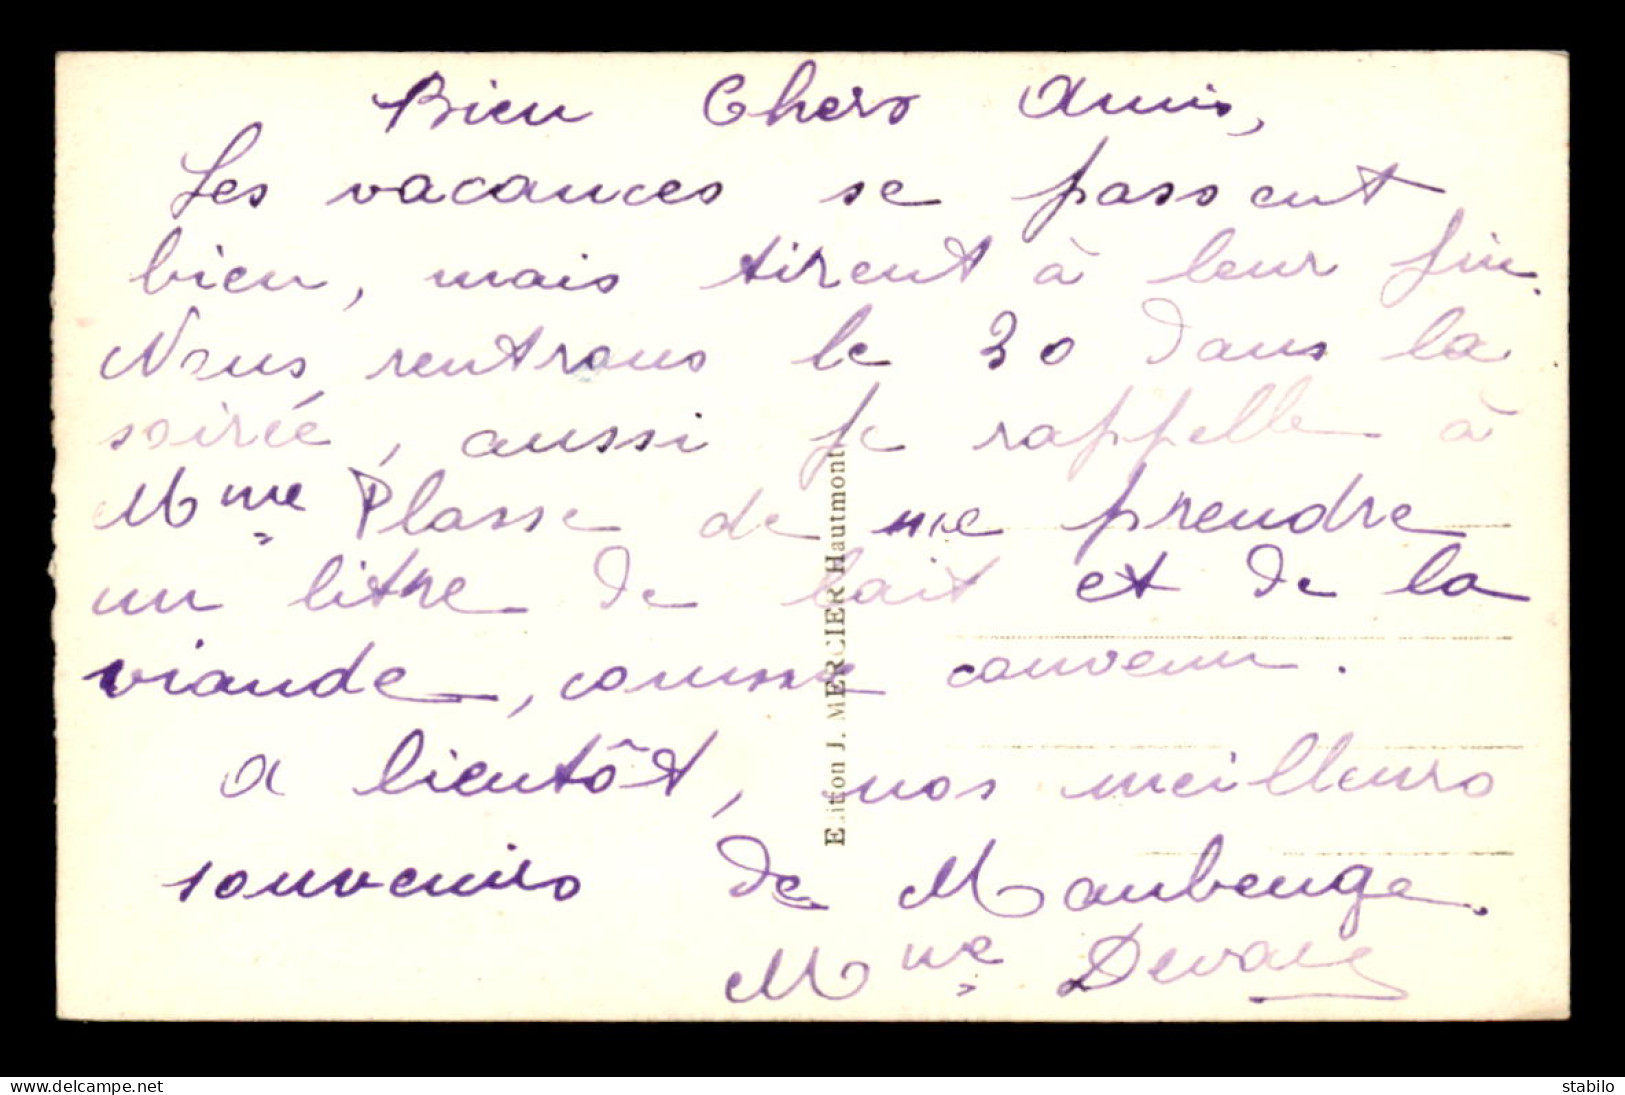 Bien Chers Amis,
Les vacances se passent
bien, mais tirent à leur fin.
Nous rentrons le 30 dans la
soirée, aussi je rappelle à
Mme Plasse de me prendre
un litre de lait et de la
viande, comme convenu.
a bientôt, nos meilleurs
souvenirs de Maubeuge.
Mme
Edition J. MERCIER Hautmont
www.delcampe.net
stabilo